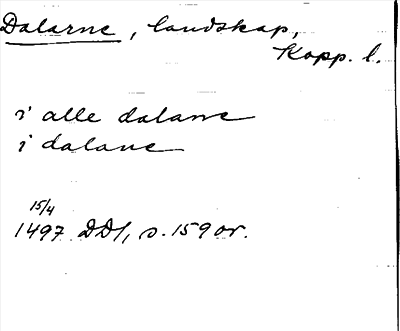 Dalarne, landskap,
Kopp. l.
i alle dalarne
i dalane
15/4
1497 DD1, s. 159 or.